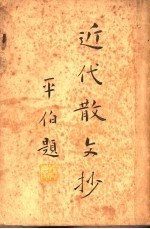 近代散文抄
平伯題